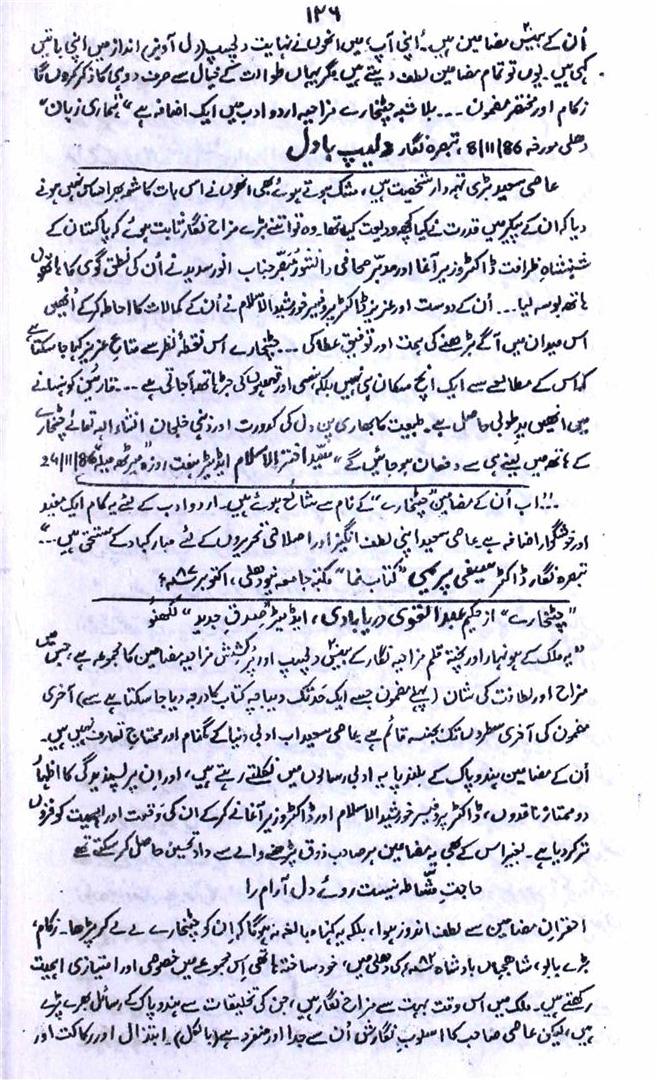 ۱۲۶
اُن کے بیس مضامین ہیں۔ "اپنی آپ" میں انھوں نے نہایت دلچسپ (دل آویز) انداز میں اپنی باتیں
کہی ہیں۔ یوں تو تمام مضامین لطف دیتے ہیں مگر یہاں طوالت کے خیال سے صرف دو ہی کا ذکر کروں گا
زکام اور مختصر مضمون ۔۔۔ بلا شبہ چٹخارے مزاحیہ اردو ادب میں ایک اضافہ ہے "ہماری زبان"
دھلی مورخہ 8/11/86، تبصرہ نگار دلیپ بادل
عاصی سعید بڑی تہہ دار شخصیت ہیں، مشک ہوتے ہوئے بھی انھوں نے اس بات کا شمہ بھر احساس نہیں ہونے
دیا کہ ان کے پیکر میں قدرت نے کیا کچھ ودیعت کیا تھا۔ وہ تو اتنے بڑے مزاح نگار ثابت ہوئے کہ پاکستان کے
شہنشاہِ ظرافت ڈاکٹر وزیر آغا اور معتبر صحافی دانشور مبصّر جناب انور سدید نے اُن کی نطق گوئی کا ہاتھوں
ہاتھ بوسہ لیا ۔۔۔ اُن کے دوست اور عزیز ڈاکٹر پروفیسر خورشید الاسلام نے اُن کے کمالات کا احاطہ کر کے انھیں
اس میدان میں آگے بڑھنے کی ہمت اور توفیق عطا کی ۔۔۔ چٹخارے اس نقطۂ نظر سے متاعِ عزیز کہا جا سکتا ہے
کہ اس کے مطالعے سے ایک انچ مسکان ہی نہیں بلکہ ہنسی اور قہقہوں کی جڑ ہاتھ آ جاتی ہے ۔۔۔ قارئین کو ہنسانے
میں انھیں یدِ طولیٰ حاصل ہے۔ طبیعت کا بھاری پن دل کی کدورت اور ذہنی خلجان انشاء اللہ تعالےٰ چٹخارے
کے ہاتھ میں لینے ہی سے دفعان ہو جائیں گے" سید اختر الاسلام ایڈیٹر ہفت روزہ "میرٹھ میلہ" 24/11/86
۔۔۔ اب اُن کے مضامین "چٹخارے" کے نام سے شائع ہوئے ہیں۔ اردو ادب کے لئے یہ کام ایک مفید
اور خوشگوار اضافہ ہے عاصی سعید اپنی لطف انگیز اور اصلاحی تحریروں کے لئے مبارکباد کے مستحق ہیں ۔۔"
تبصرہ نگار ڈاکٹر سیفی پریمی "کتاب نما" مکتبہ جامعہ نیو دھلی، اکتوبر ۸۷ء
"چٹخارے" از حکیم عبد القوی دریابادی، ایڈیٹر "صدق جدید" لکھنؤ
"یہ ملک کے ہونہار اور پختہ قلم مزاحیہ نگار کے بیس دلچسپ اور پُر کشش مزاحیہ مضامین کا مجموعہ ہے جس میں
مزاح اور لطافت کی شان (پہلے مضمون جسے ایک حد تک دیباچہ کتاب کا درجہ دیا جا سکتا ہے سے) آخری
مضمون کی آخری سطروں تک بجنسہ قائم ہے عاصی سعید اب ادبی دنیا کے گمنام اور محتاجِ تعارف نہیں ہیں۔
اُن کے مضامین ہندو پاک کے بلند پایہ ادبی رسالوں میں نکلتے رہتے ہیں، اور ان پر پسندیدگی کا اظہار
دو ممتاز ناقدوں، ڈاکٹر پروفیسر خورشید الاسلام اور ڈاکٹر وزیر آغا نے کر کے ان کی وقعت اور اہمیت کو فزوں
تر کر دیا ہے۔ بغیر اس کے بھی یہ مضامین ہر صاحب ذوق پڑھنے والے سے دادِ تحسین حاصل کر سکتے تھے
حاجتِ مشّاطہ نیست روئے دل آرام را
احقر ان مضامین سے لطف اندوز ہوا، بلکہ یہ کہنا مبالغہ نہ ہوگا کہ اِن کو چٹخارے لے لے کر پڑھا۔ زکام،
بڑے بابو، شاہجہاں بادشاہ ۸۲ء کی دھلی میں، خود ساختہ ہاتھی اِس مجموعے میں خصوصی اور امتیازی اہمیت
رکھتے ہیں۔ ملک میں اس وقت بہت سے مزاح نگار ہیں، جن کی تخلیقات سے ہندو پاک کے رسائل بھرے پڑے
ہیں، لیکن عاصی صاحب کا اسلوب نگارش اُن سے جدا اور منفرد ہے (بالکل)۔ ابتذال اور رکاکت اور